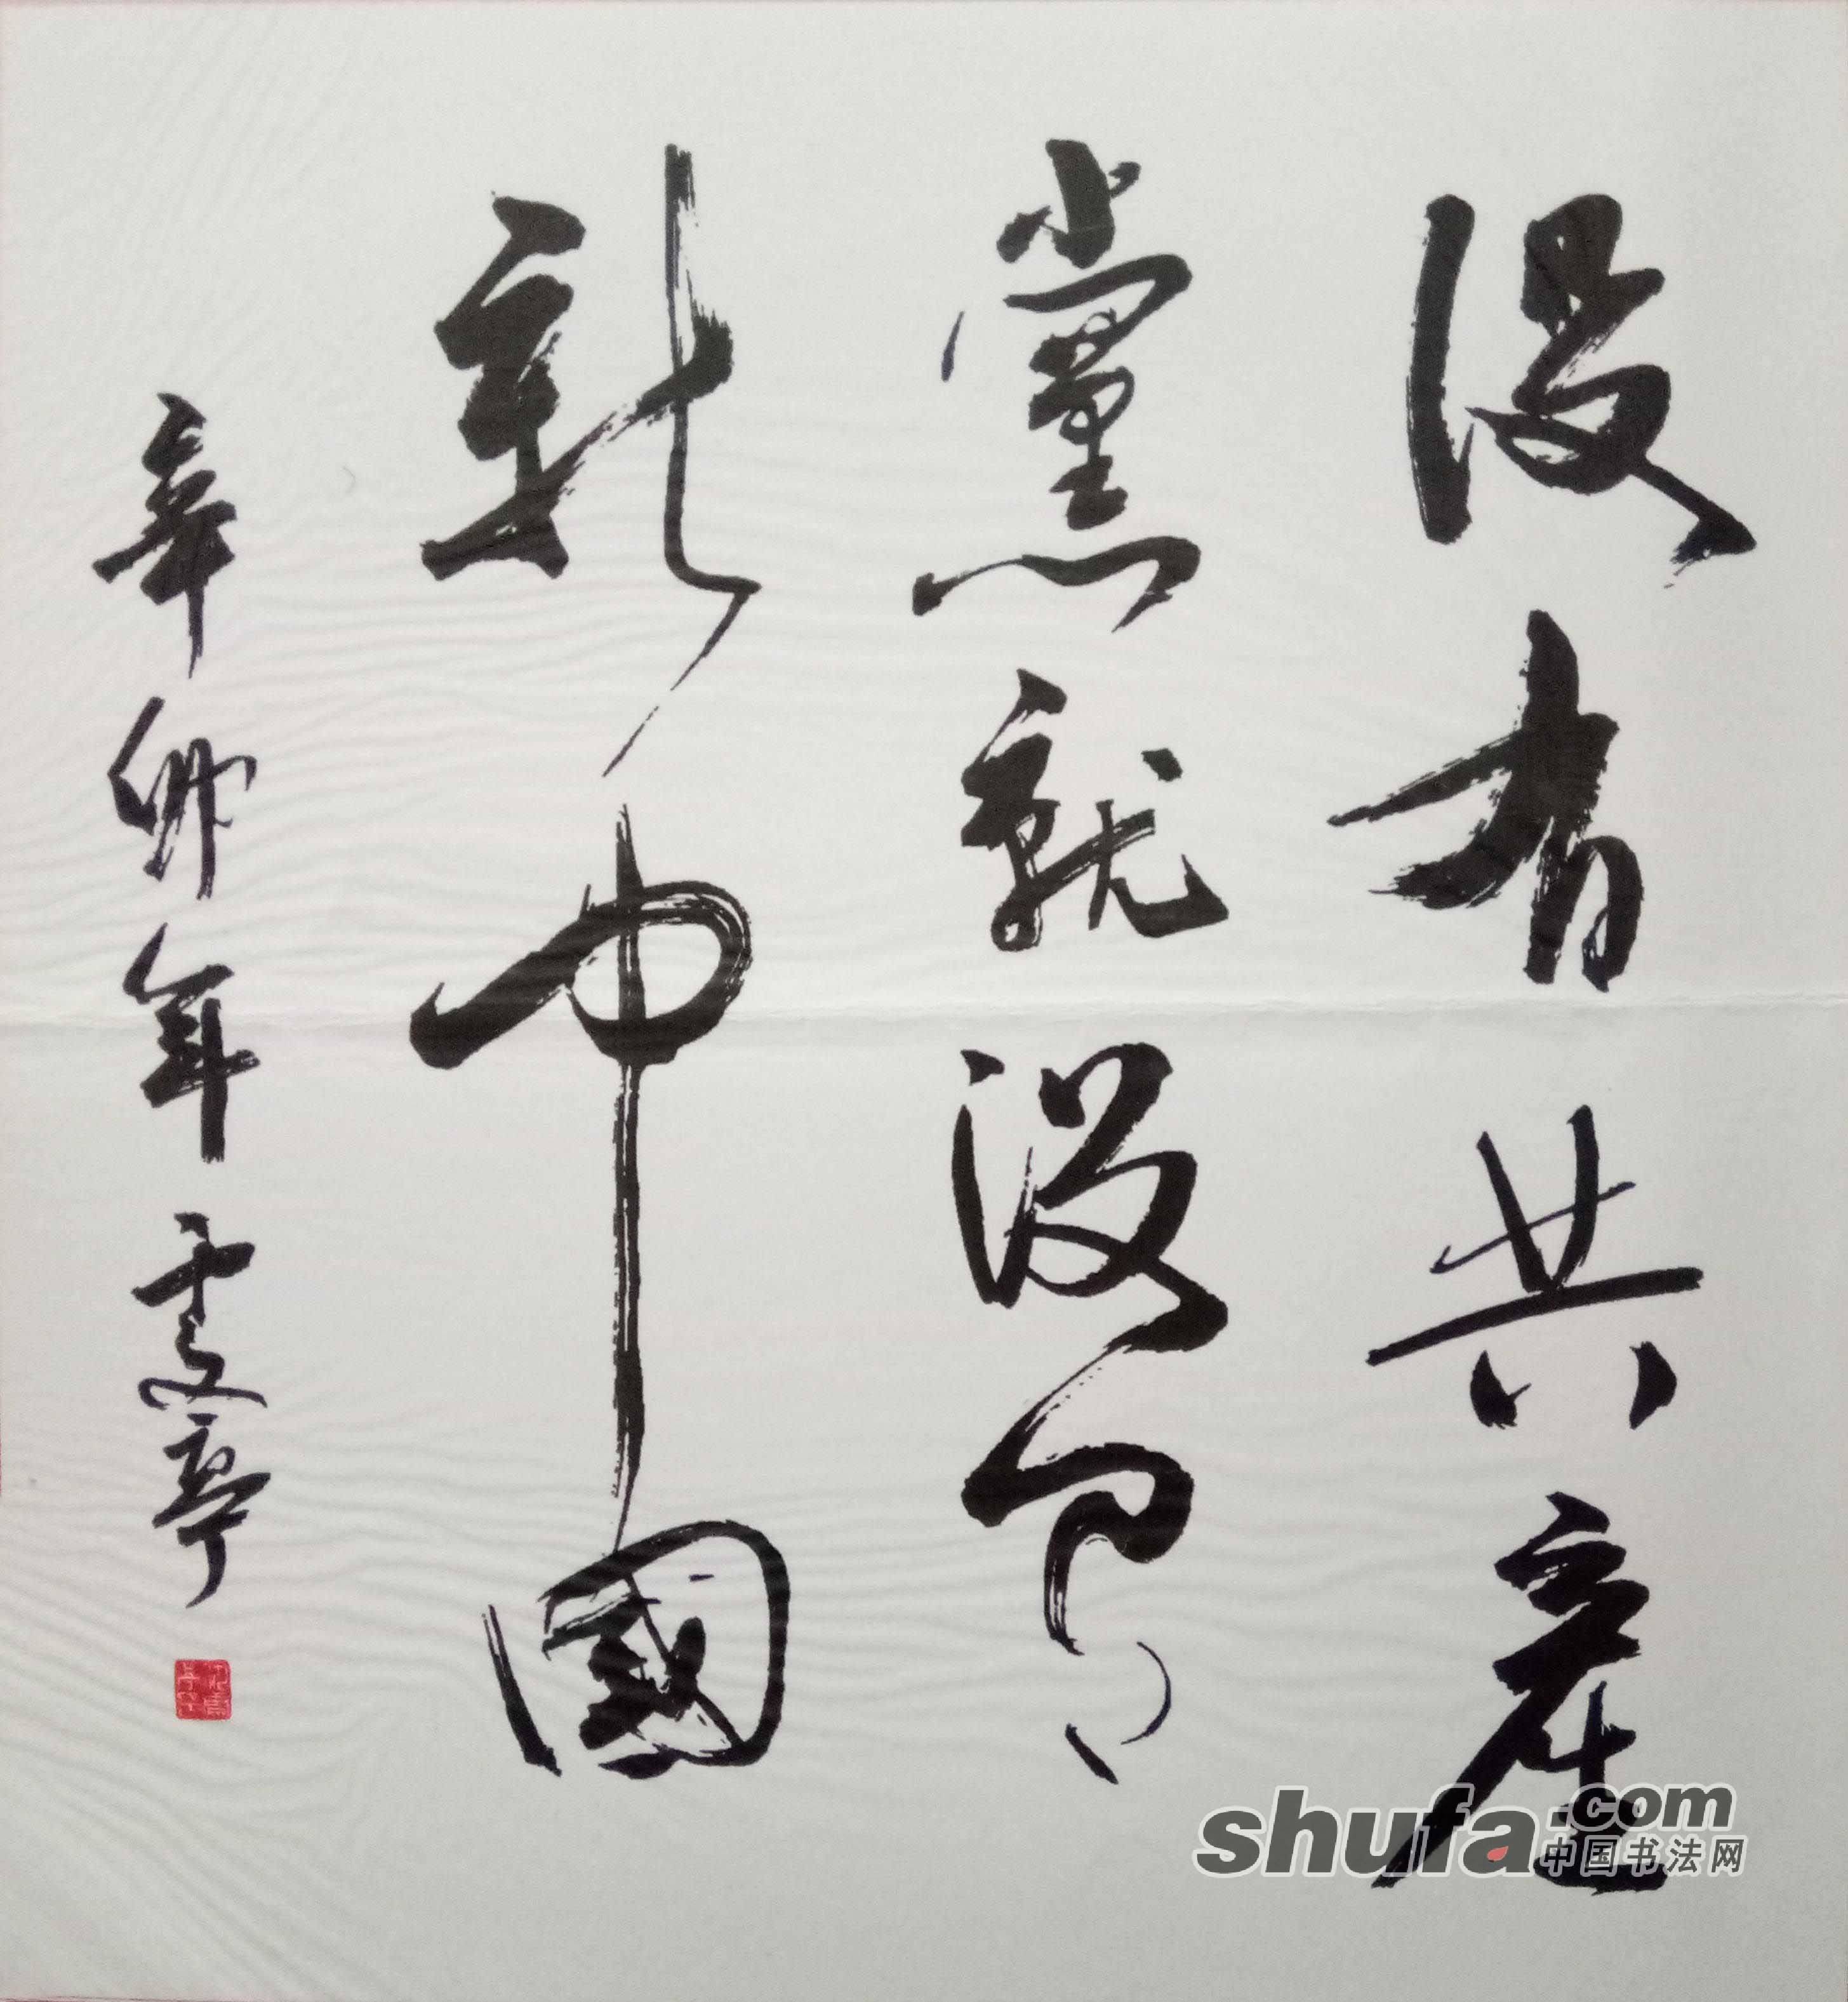 沒有共產
黨就沒有
新中國
辛卯年雲亭
shufa.com
中国书法网